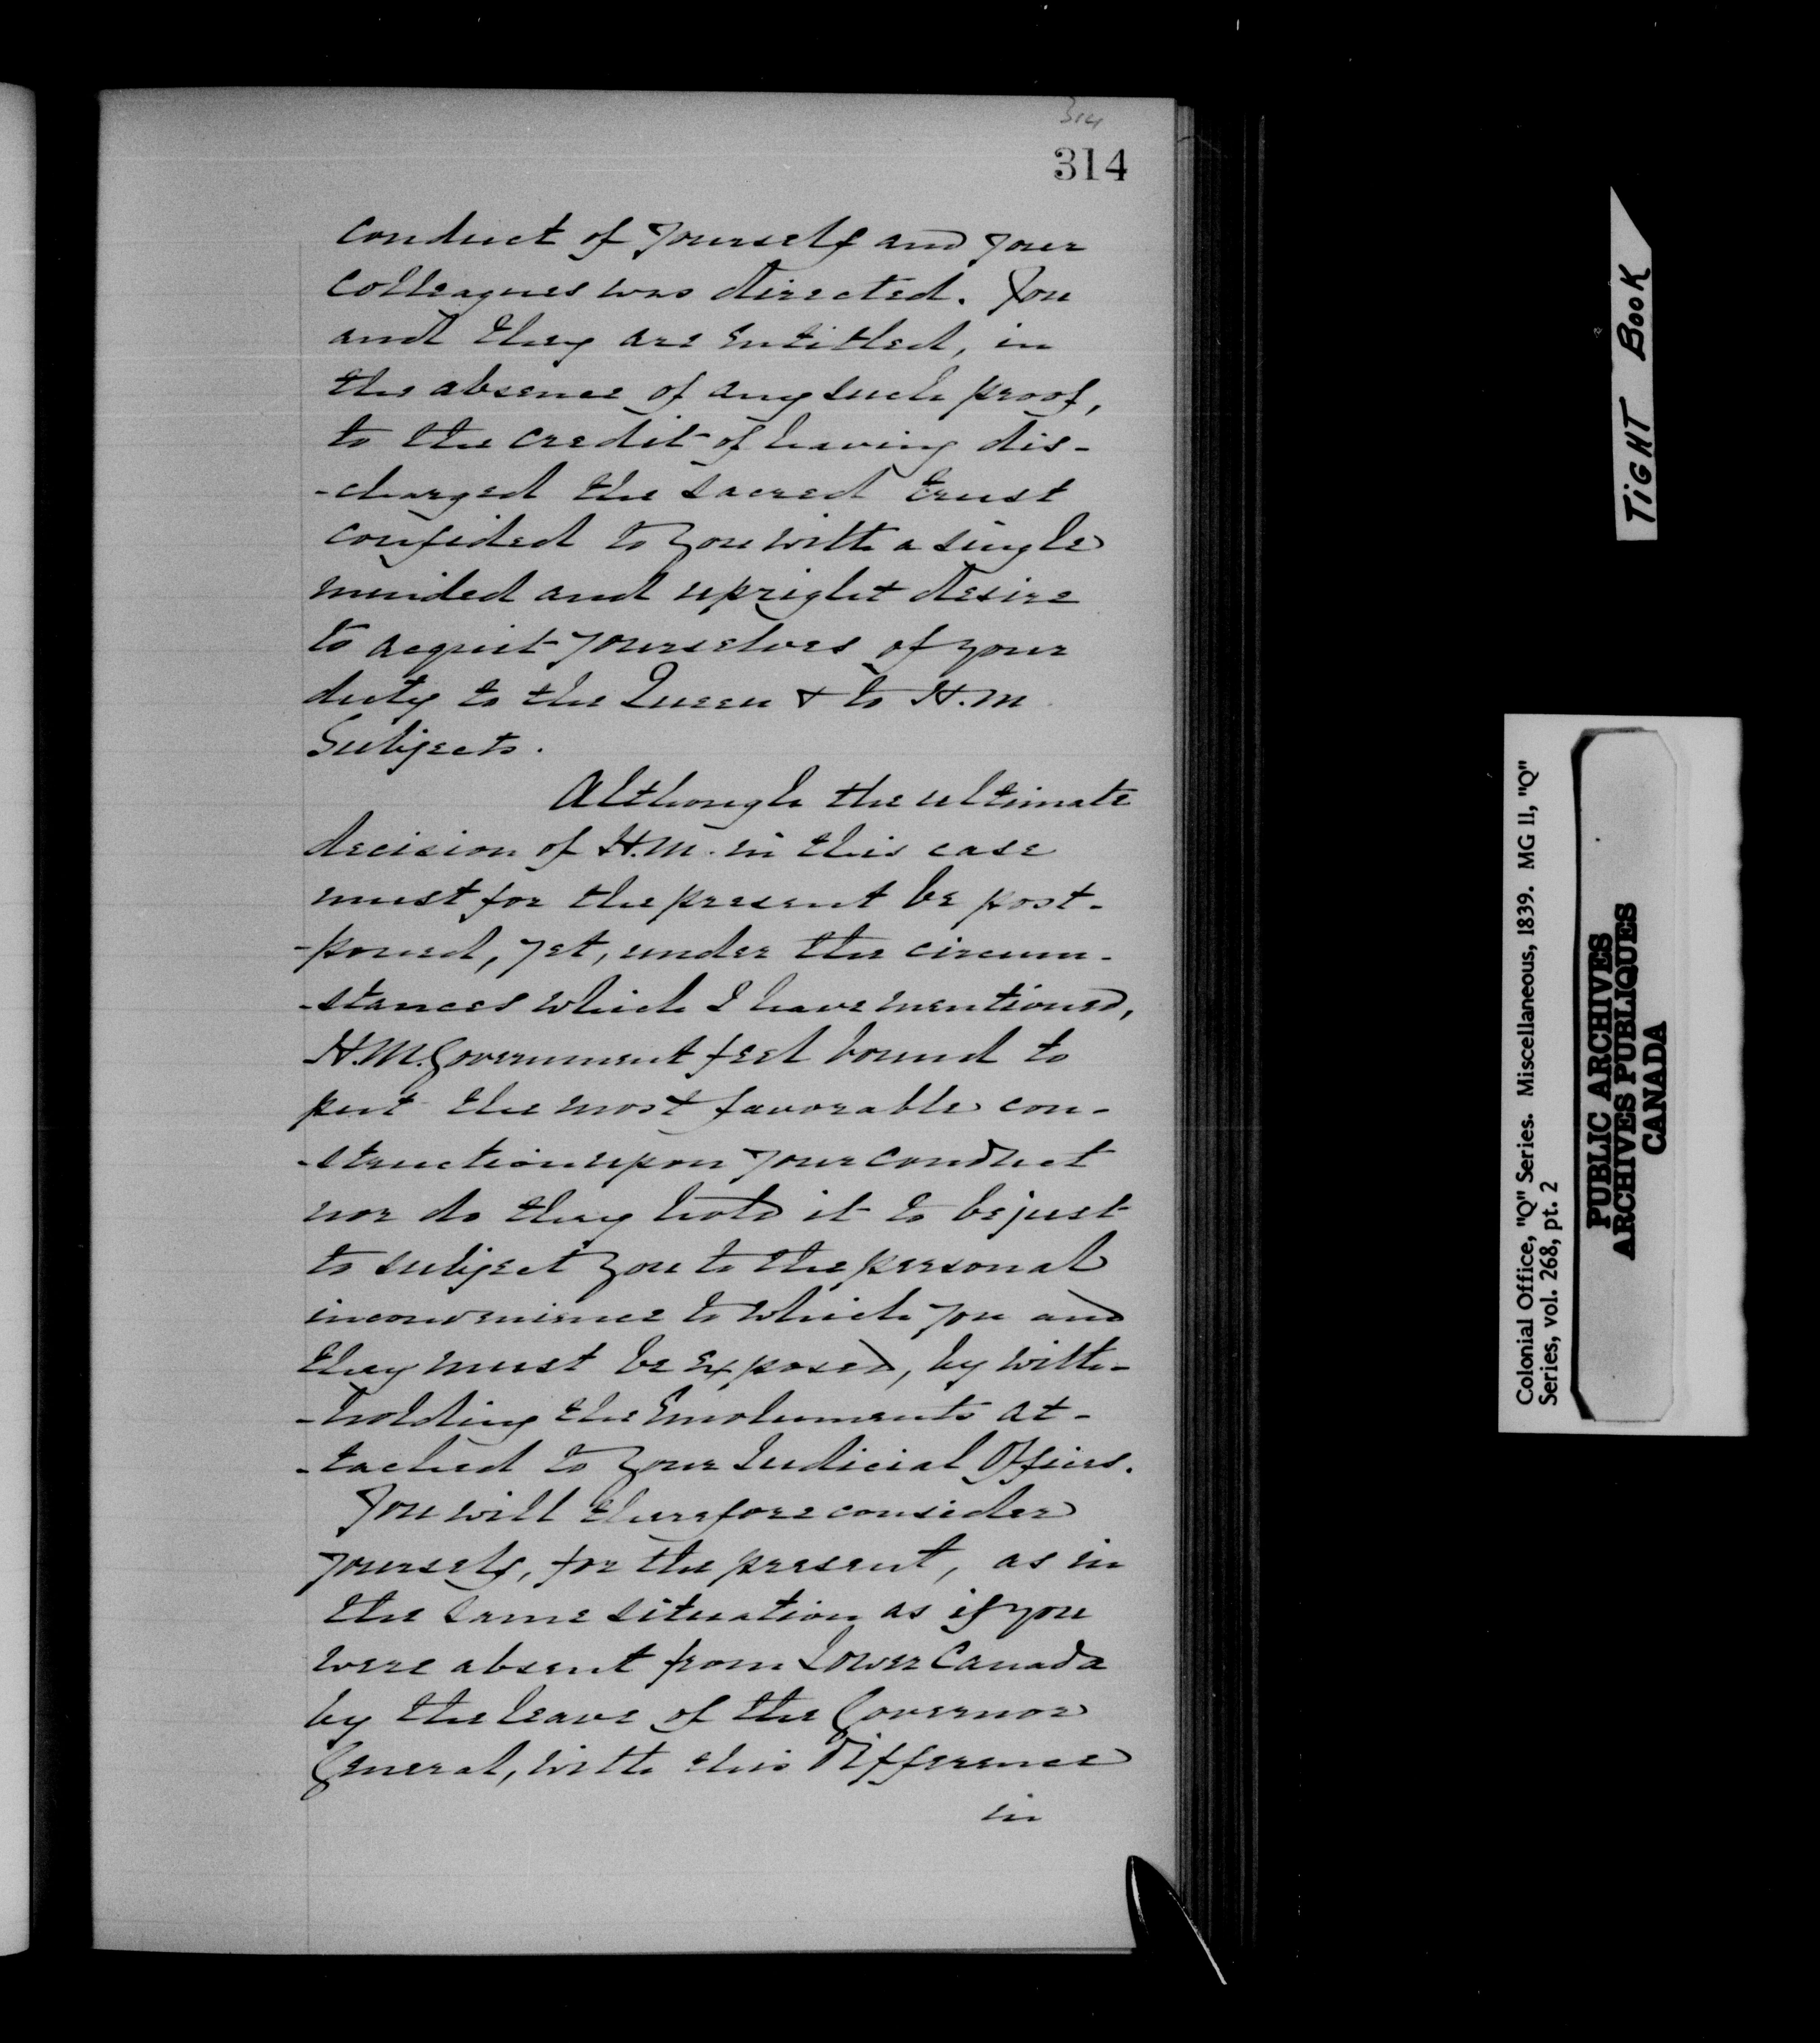 314
314
conduct of yourself and your
colleagues was directed. You
and they are entitled, in
the absence of any such proof,
to the credit of having dis-
-charged the sacred trust
confided to you with a single
minded and upright desire
to acquit yourselves of your
duty to the Queen & to H.M.
Subjects.
Although the ultimate
decision of H.M. in this case
must for the present be post-
-poned, yet, under the circum-
-stances which I have mentioned,
H.M. Government feel bound to
put the most favorable con-
-struction upon your conduct
nor do they hold it to be just
to subject you to the personal
inconvenience to which you and
they must be exposed, by with-
-holding the Emoluments at-
-tached to your Judicial Offices.
You will therefore consider
yourself, for the present, as in
the same situation as if you
were absent from Lower Canada
by the leave of the Governor
General, with this difference
in
TIGHT BOOK
Colonial Office, "Q" Series. Miscellaneous, 1839. MG 11, "Q"
Series, vol. 268, pt. 2
PUBLIC ARCHIVES
ARCHIVES PUBLIQUES
CANADA